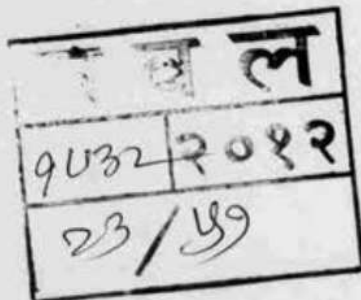 व ल
१५३२ २०१२
२३ / ५१